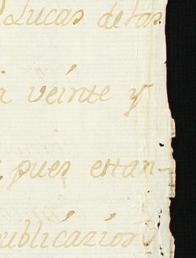 Lucas de los
a veinte y
pues estan-
publicazion